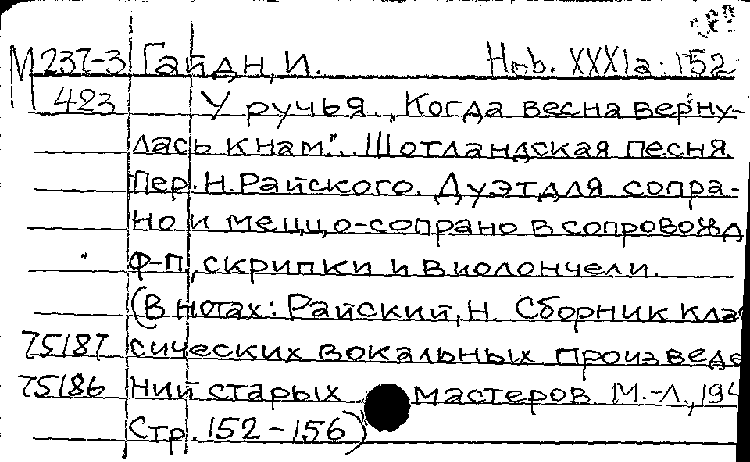 М 237-3 Гайдн, И. Hob. XXXIa: 152
423 У ручья. „Когда весна верну-
лась к нам". Шотландская песня
Пер. Н. Райского. Дуэт для сопра-
но и меццо-сопрано в сопровожд
ф-п, скрипки и виолончели.
(В нотах: Райский, Н. Сборник клас
75187 сических вокальных произведе
75186 ний старых мастеров. М.-Л., 194
Стр. 152-156)